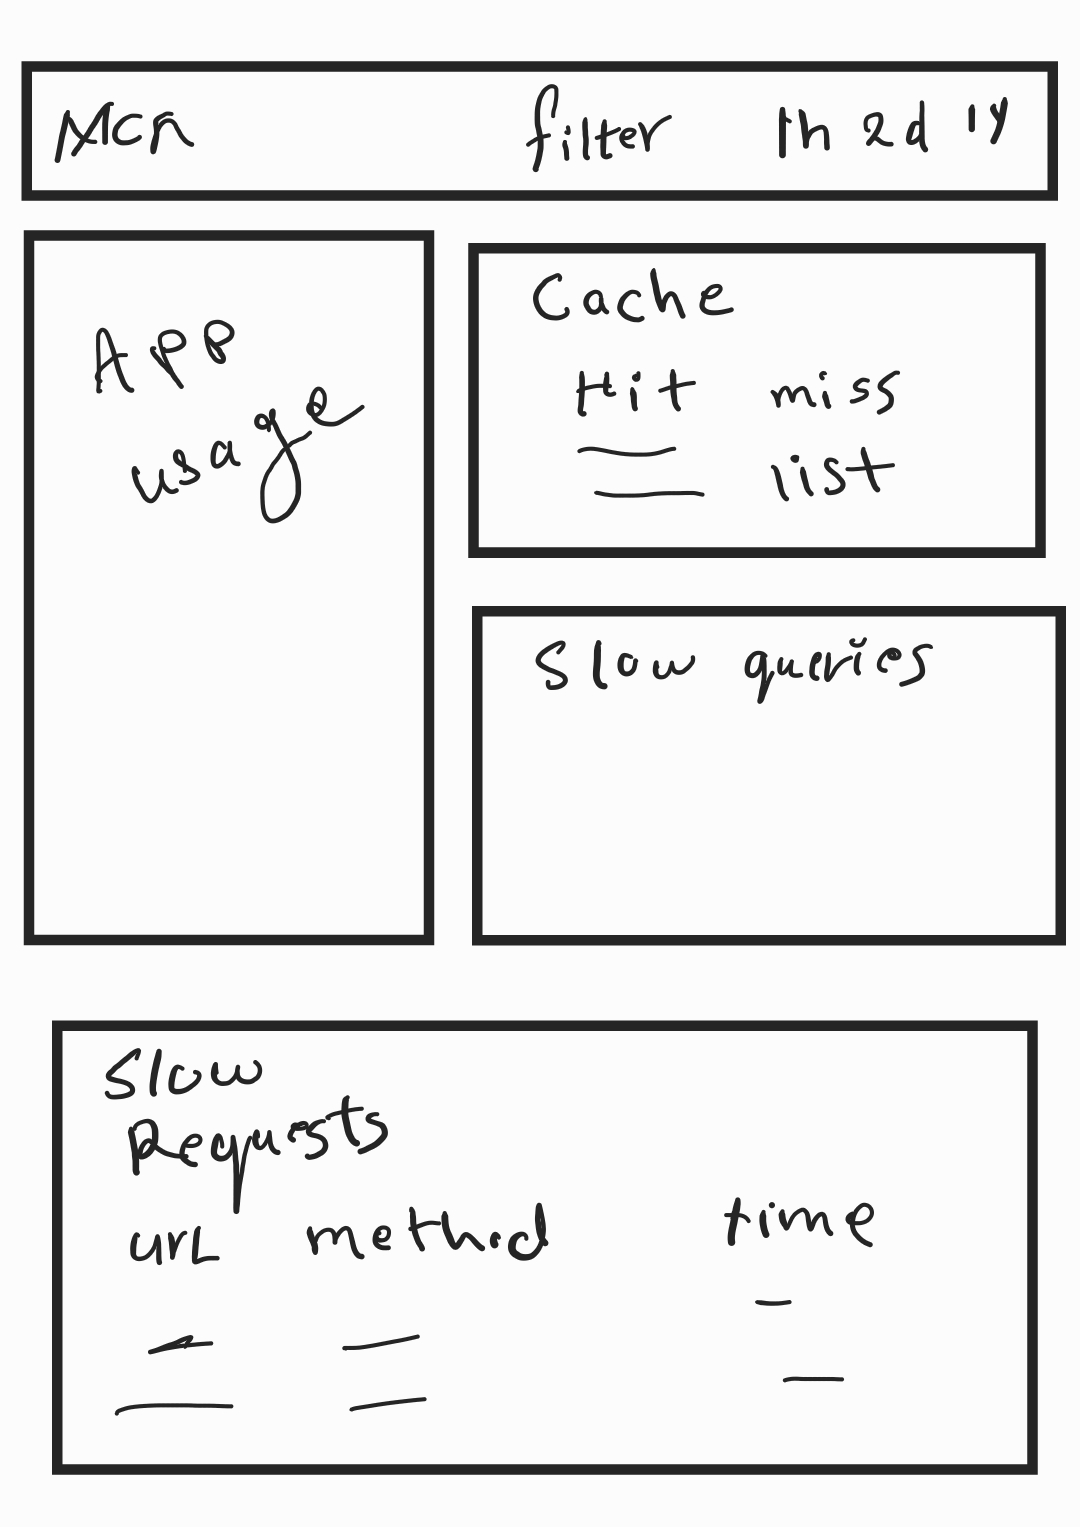 filter 1h 2d 1y
App
usage
Cache
Hit miss
list
Slow queries
Slow
Requests
url method time